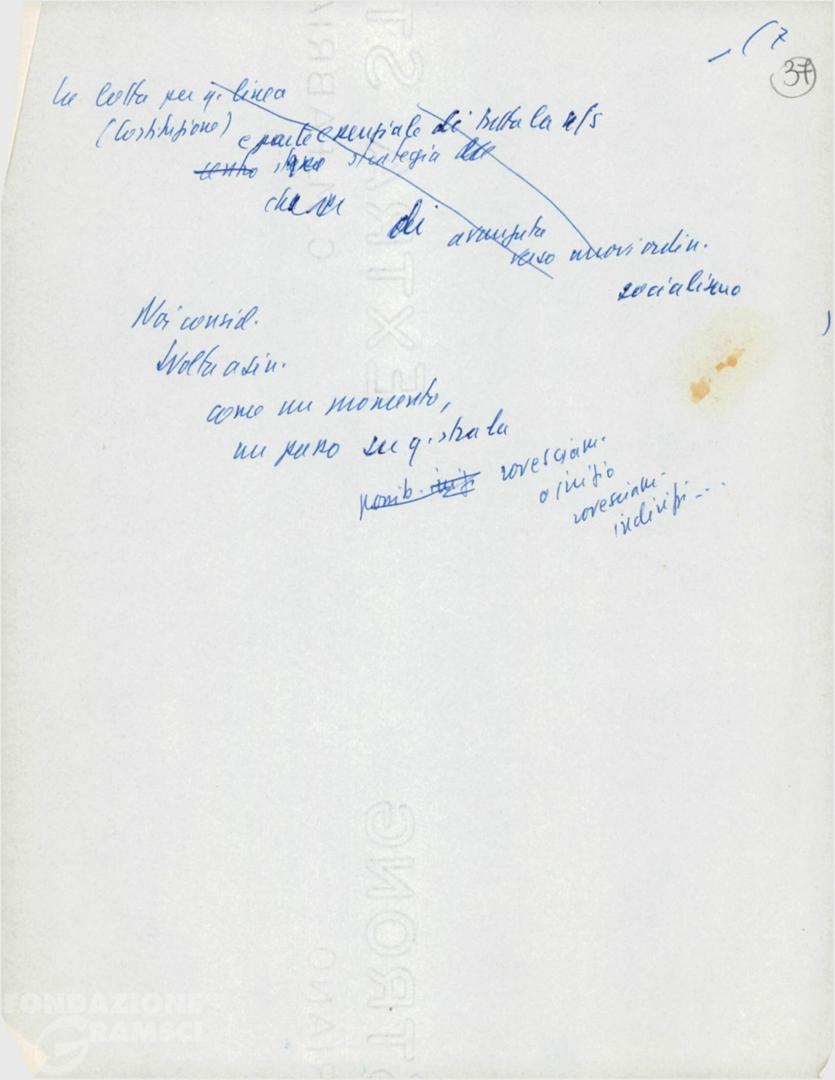 – (7
37
La lotta per q. linea
(Costituzione)
è parte essenziale di tutta la n/s
strategia
di avanzata
verso nuovi ordin.
socialismo
Noi consid.
Svolta a sin.
come un momento,
un passo su q. strada
possib. iniz rovesciam.
o inizio
rovesciam.
indirizzi ...
EXTRA STRONG
FABRIANO
FONDAZIONE
GRAMSCI